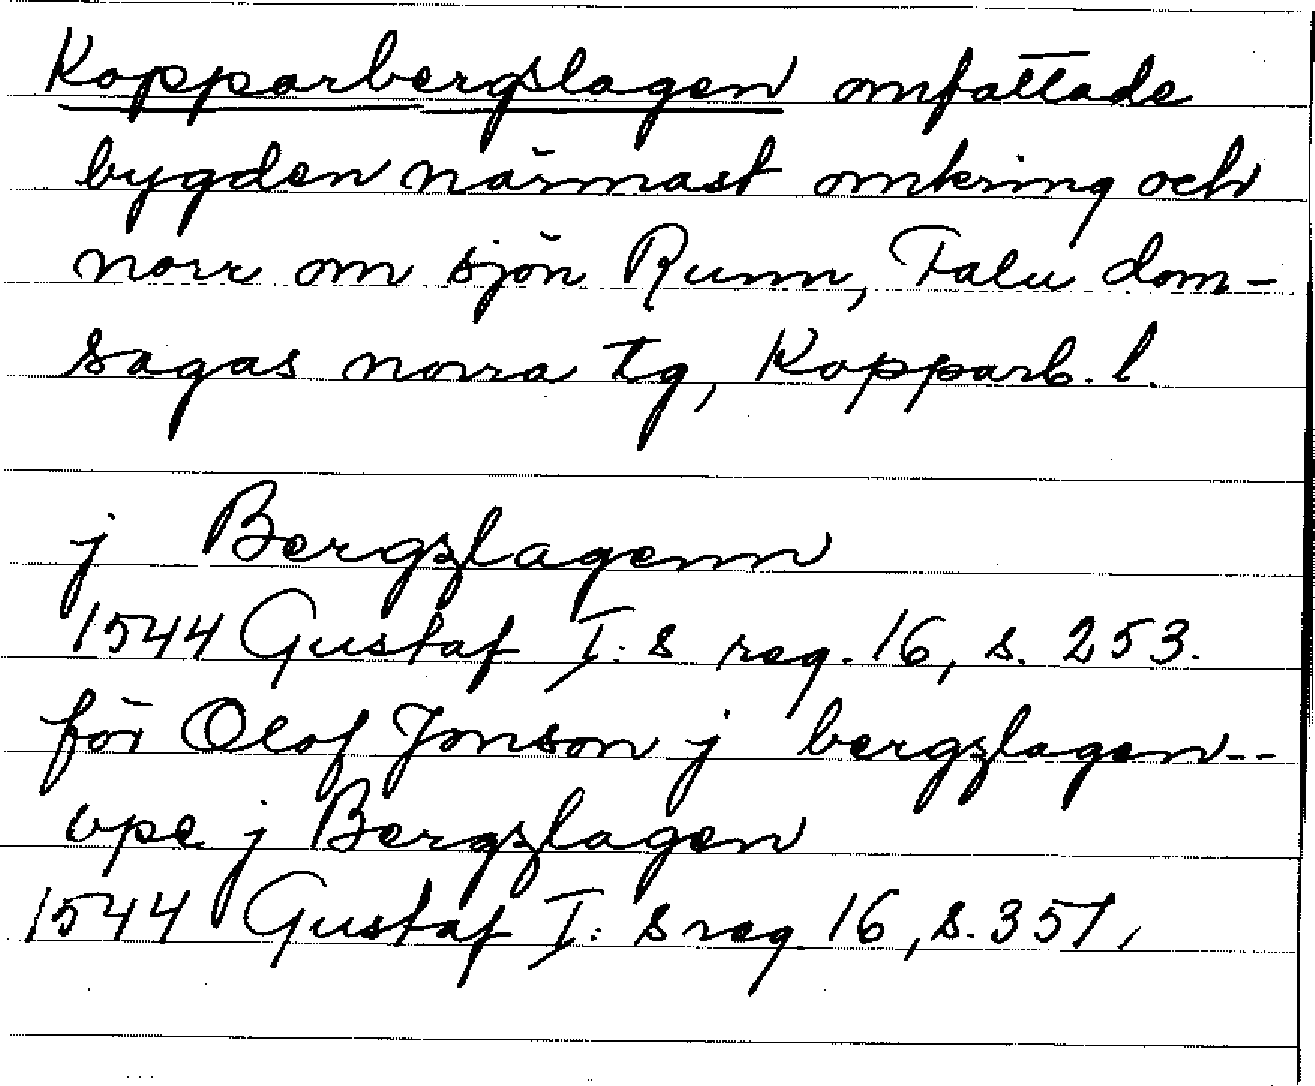 Kopparbergslagen omfattade
bygden närmast omkring och
norr om sjön Runn, Falu dom-
sagas norra tg, Kopparb. l.
j Bergzlagenn
1544 Gustaf I:s reg. 16, s. 253.
för Olof Jonson j bergzlagen--
vpe j Bergzlagen
1544 Gustaf I:s reg. 16, s. 351,